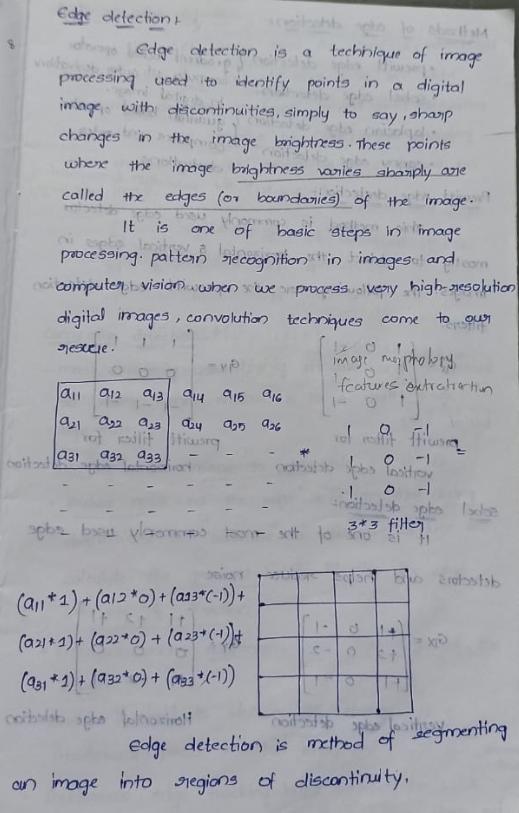 8
Edge detection :
Edge detection is a technique of image
processing used to identify points in a digital
image, with discontinuities, simply to say, sharp
changes in the image brightness. These points
where the image brightness varies sharply are
called the edges (or boundaries) of the image.
It is one of basic steps in image
processing. pattern recognition in images and
computer vision when we process very high-resolution
digital images, convolution techniques come to our
rescue.
image morphology
features extration
a11 a12 a13 a14 a15 a16
a21 a22 a23 a24 a25 a26
a31 a32 a33 - - -
- - - - - -
- - - - - -
*
1 0 -1
1 0 -1 =
1 0 -1
3*3 filter
(a11*1)+(a12*0)+(a13*(-1))+
(a21*1)+(a22*0)+(a23*(-1))+
(a31*1)+(a32*0)+(a33*(-1))
Edge detection is method of segmenting
an image into regions of discontinuity.